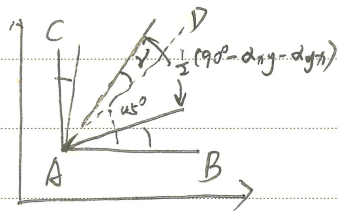 C
D
γ
½(90° - αxy - αyx)
45°
A
B